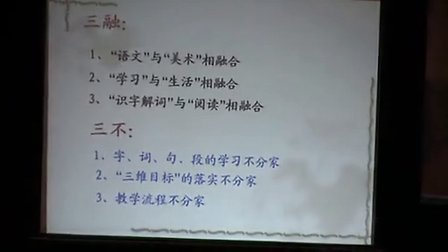 三融：
1、“语文”与“美术”相融合
2、“学习”与“生活”相融合
3、“识字解词”与“阅读”相融合
三不：
1、字、词、句、段的学习不分家
2、“三维目标”的落实不分家
3、教学流程不分家